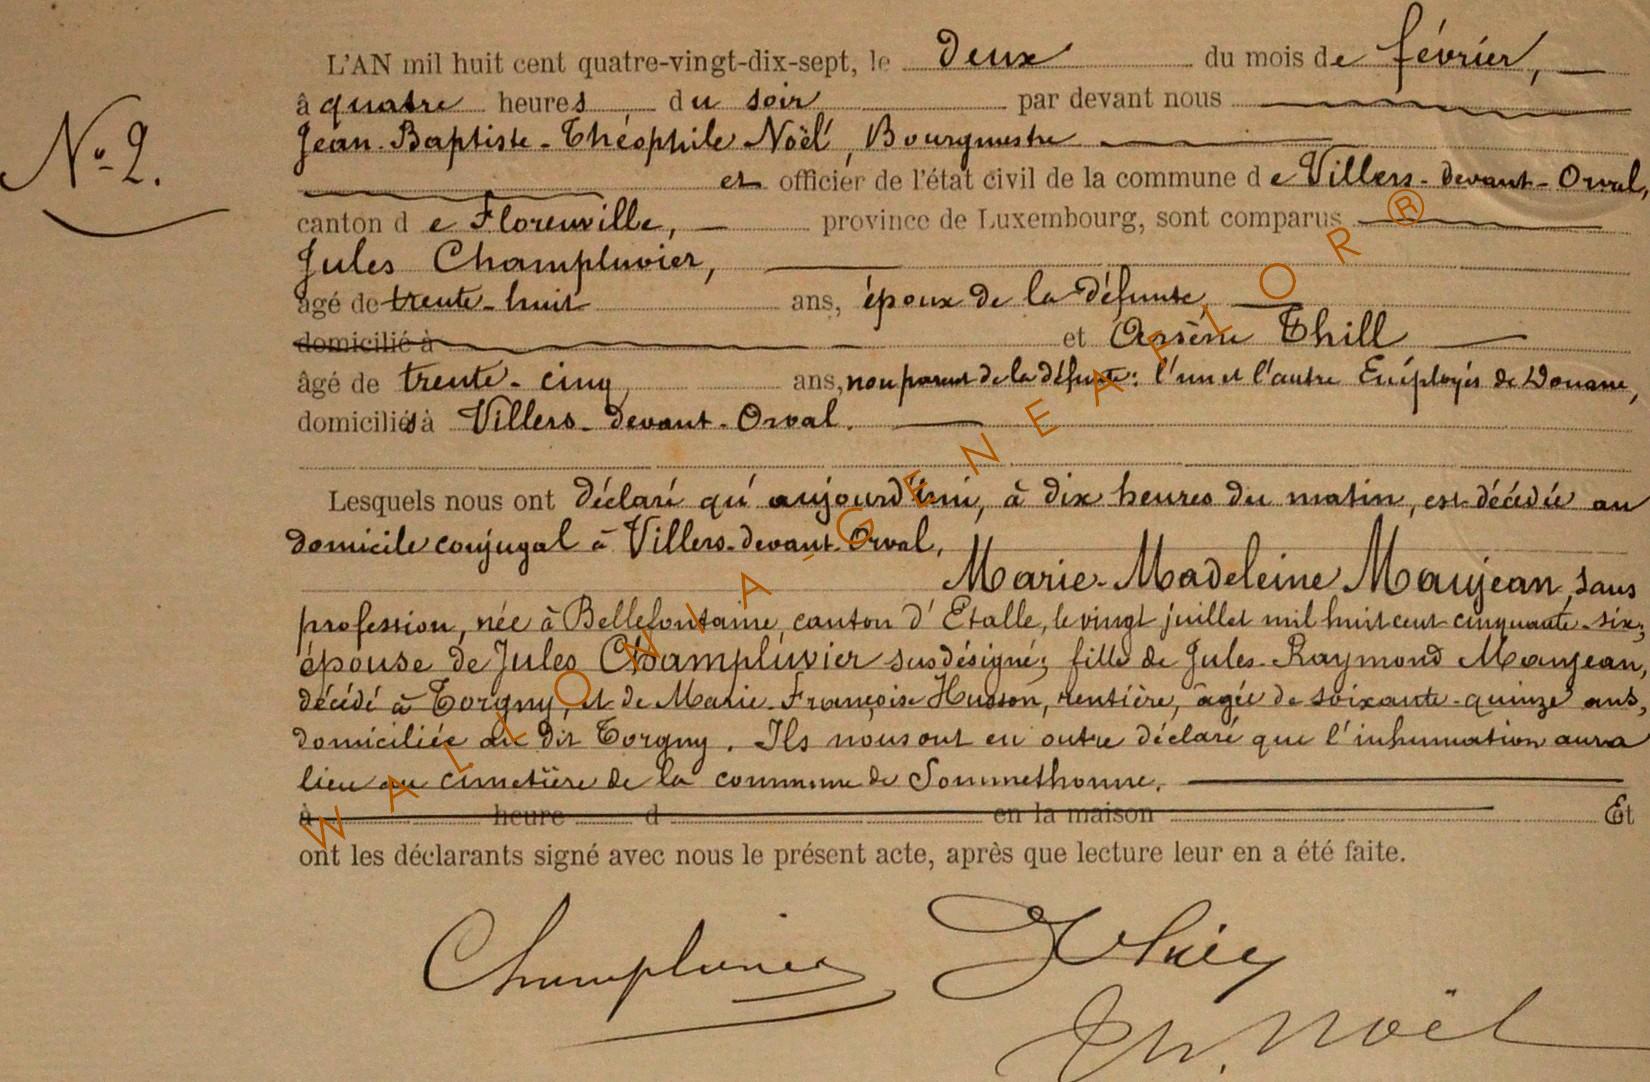 L'AN mil huit cent quatre-vingt-dix-sept, le deux du mois de février,
à quatre heures du soir par devant nous
N.o 2.
Jean-Baptiste-Théophile Noël, Bourgmestre
et officier de l'état civil de la commune de Villers-devant-Orval,
canton de Florenville, province de Luxembourg, sont comparus
Jules Champluvier,
âgé de trente-huit ans, époux de la défunte,
domicilié à et Arsène Thill
âgé de trente-cinq ans, non parent de la défunte: l'un et l'autre Employés de Douane,
domiciliés à Villers-devant-Orval.
Lesquels nous ont déclaré qu'aujourd'hui, à dix heures du matin, est décédée au
domicile conjugal à Villers-devant-Orval,
Marie-Madeleine Maujean, sans
profession, née à Bellefontaine, canton d'Etalle, le vingt juillet mil huit cent cinquante-six;
épouse de Jules Champluvier susdésigné; fille de Jules-Raymond Maujean,
décédé à Torgny, et de Marie-Françoise Husson, rentière, âgée de soixante-quinze ans,
domiciliée au dit Torgny. Ils nous ont en outre déclaré que l'inhumation aura
lieu au cimetière de la commune de Sommethonne.
à heure d en la maison Et
ont les déclarants signé avec nous le présent acte, après que lecture leur en a été faite.
Champluvier
Th. Noël
WALLONIA-GENEAFLOR®